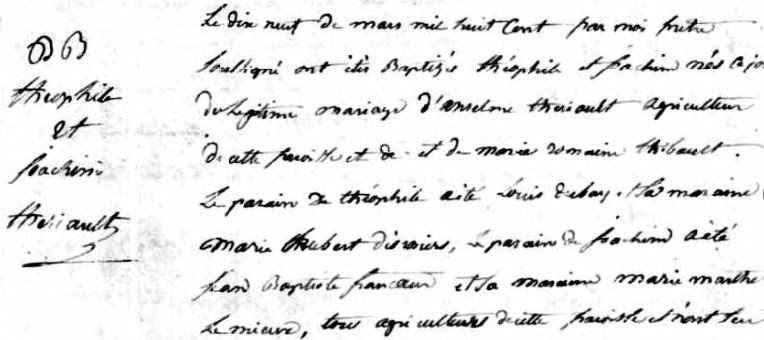 BB
théophile
et
Joachim
theriault
Le dix neuf de mars mil huit Cent par moi prêtre
Soussigné ont étés Baptizés théophile et Joachim nés ce jo
du legitime mariage d'anselme theriault agriculteur
de cette paroisse et de et de marie romaine thibault.
Le parain de théophile a été Louis dubay et la maraine
marie hubert, le parain de Joachim a été
jean Baptiste francoeur et sa maraine marie marthe
Le mieux, tous agriculteurs de cette paroisse et n'ont seu